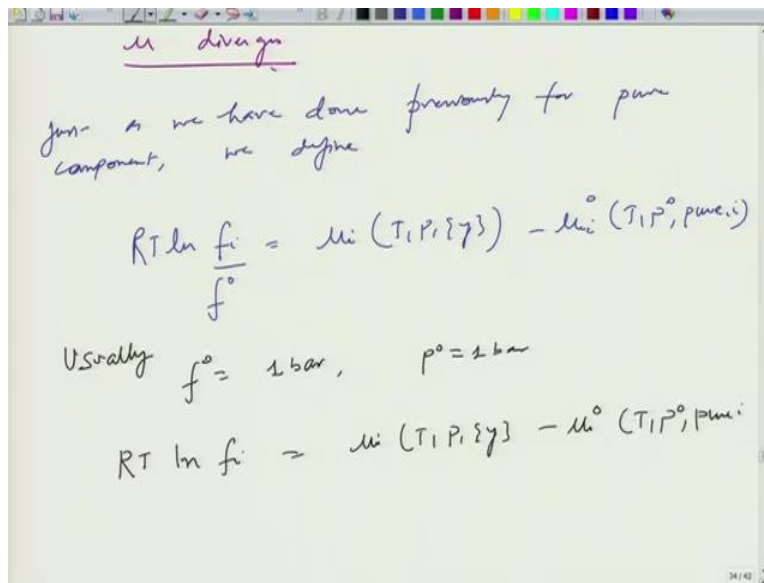 μ diverges
Just as we have done previously for pure
component, we define
RT ln fi/f° = μi (T, P, {y}) - μi° (T, P°, pure, i)
Usually f° = 1 bar, P° = 1 bar
RT ln fi = μi (T, P, {y} - μi° (T, P°, pure i
34/42